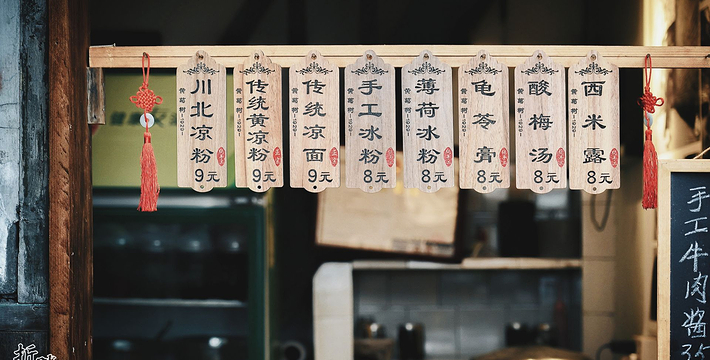 川北凉粉 9元
传统黄凉粉 9元
传统凉面 9元
手工冰粉 8元
薄荷冰粉 8元
龟苓膏 8元
酸梅汤 8元
西米露 8元
手工牛肉酱